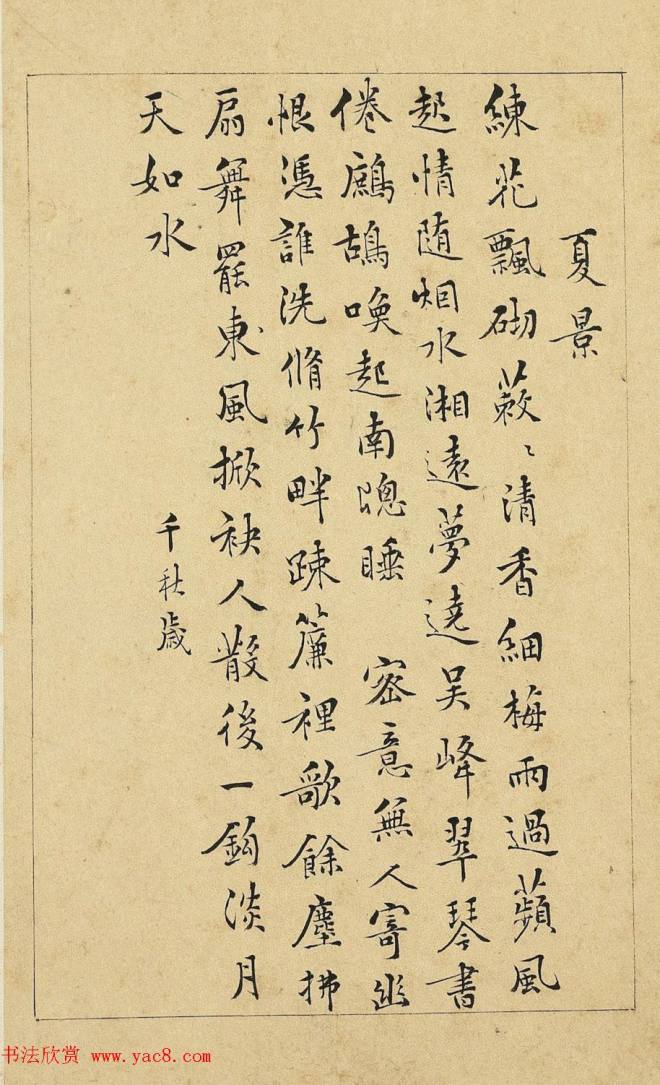 夏景
練花飄砌蔌〻清香細梅雨過蘋風
起情随烟水湘遠夢遶吴峰翠琴書
倦鷓鴣喚起南窗睡　密意無人寄幽
恨憑誰洗脩竹畔踈簾裡歌餘塵拂
扇舞罷東風掀袂人散後一鈎淡月
天如水
千秋歳
书法欣赏 www.yac8.com